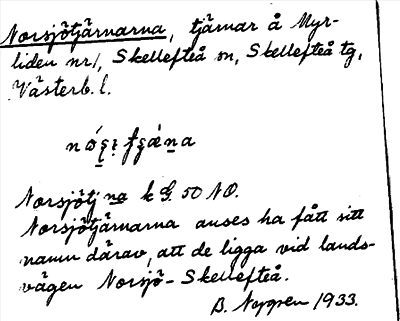 Norsjötjärnarna, tjärnar å Myr-
liden nr 1, Skellefteå sn, Skellefteå tg,
Västerb. l.
Norsjötj na k G. 50 NO.
Norsjötjärnarna anses ha fått sitt
namn därav, att de ligga vid lands-
vägen Norsjö-Skellefteå.
B. Noppen 1933.